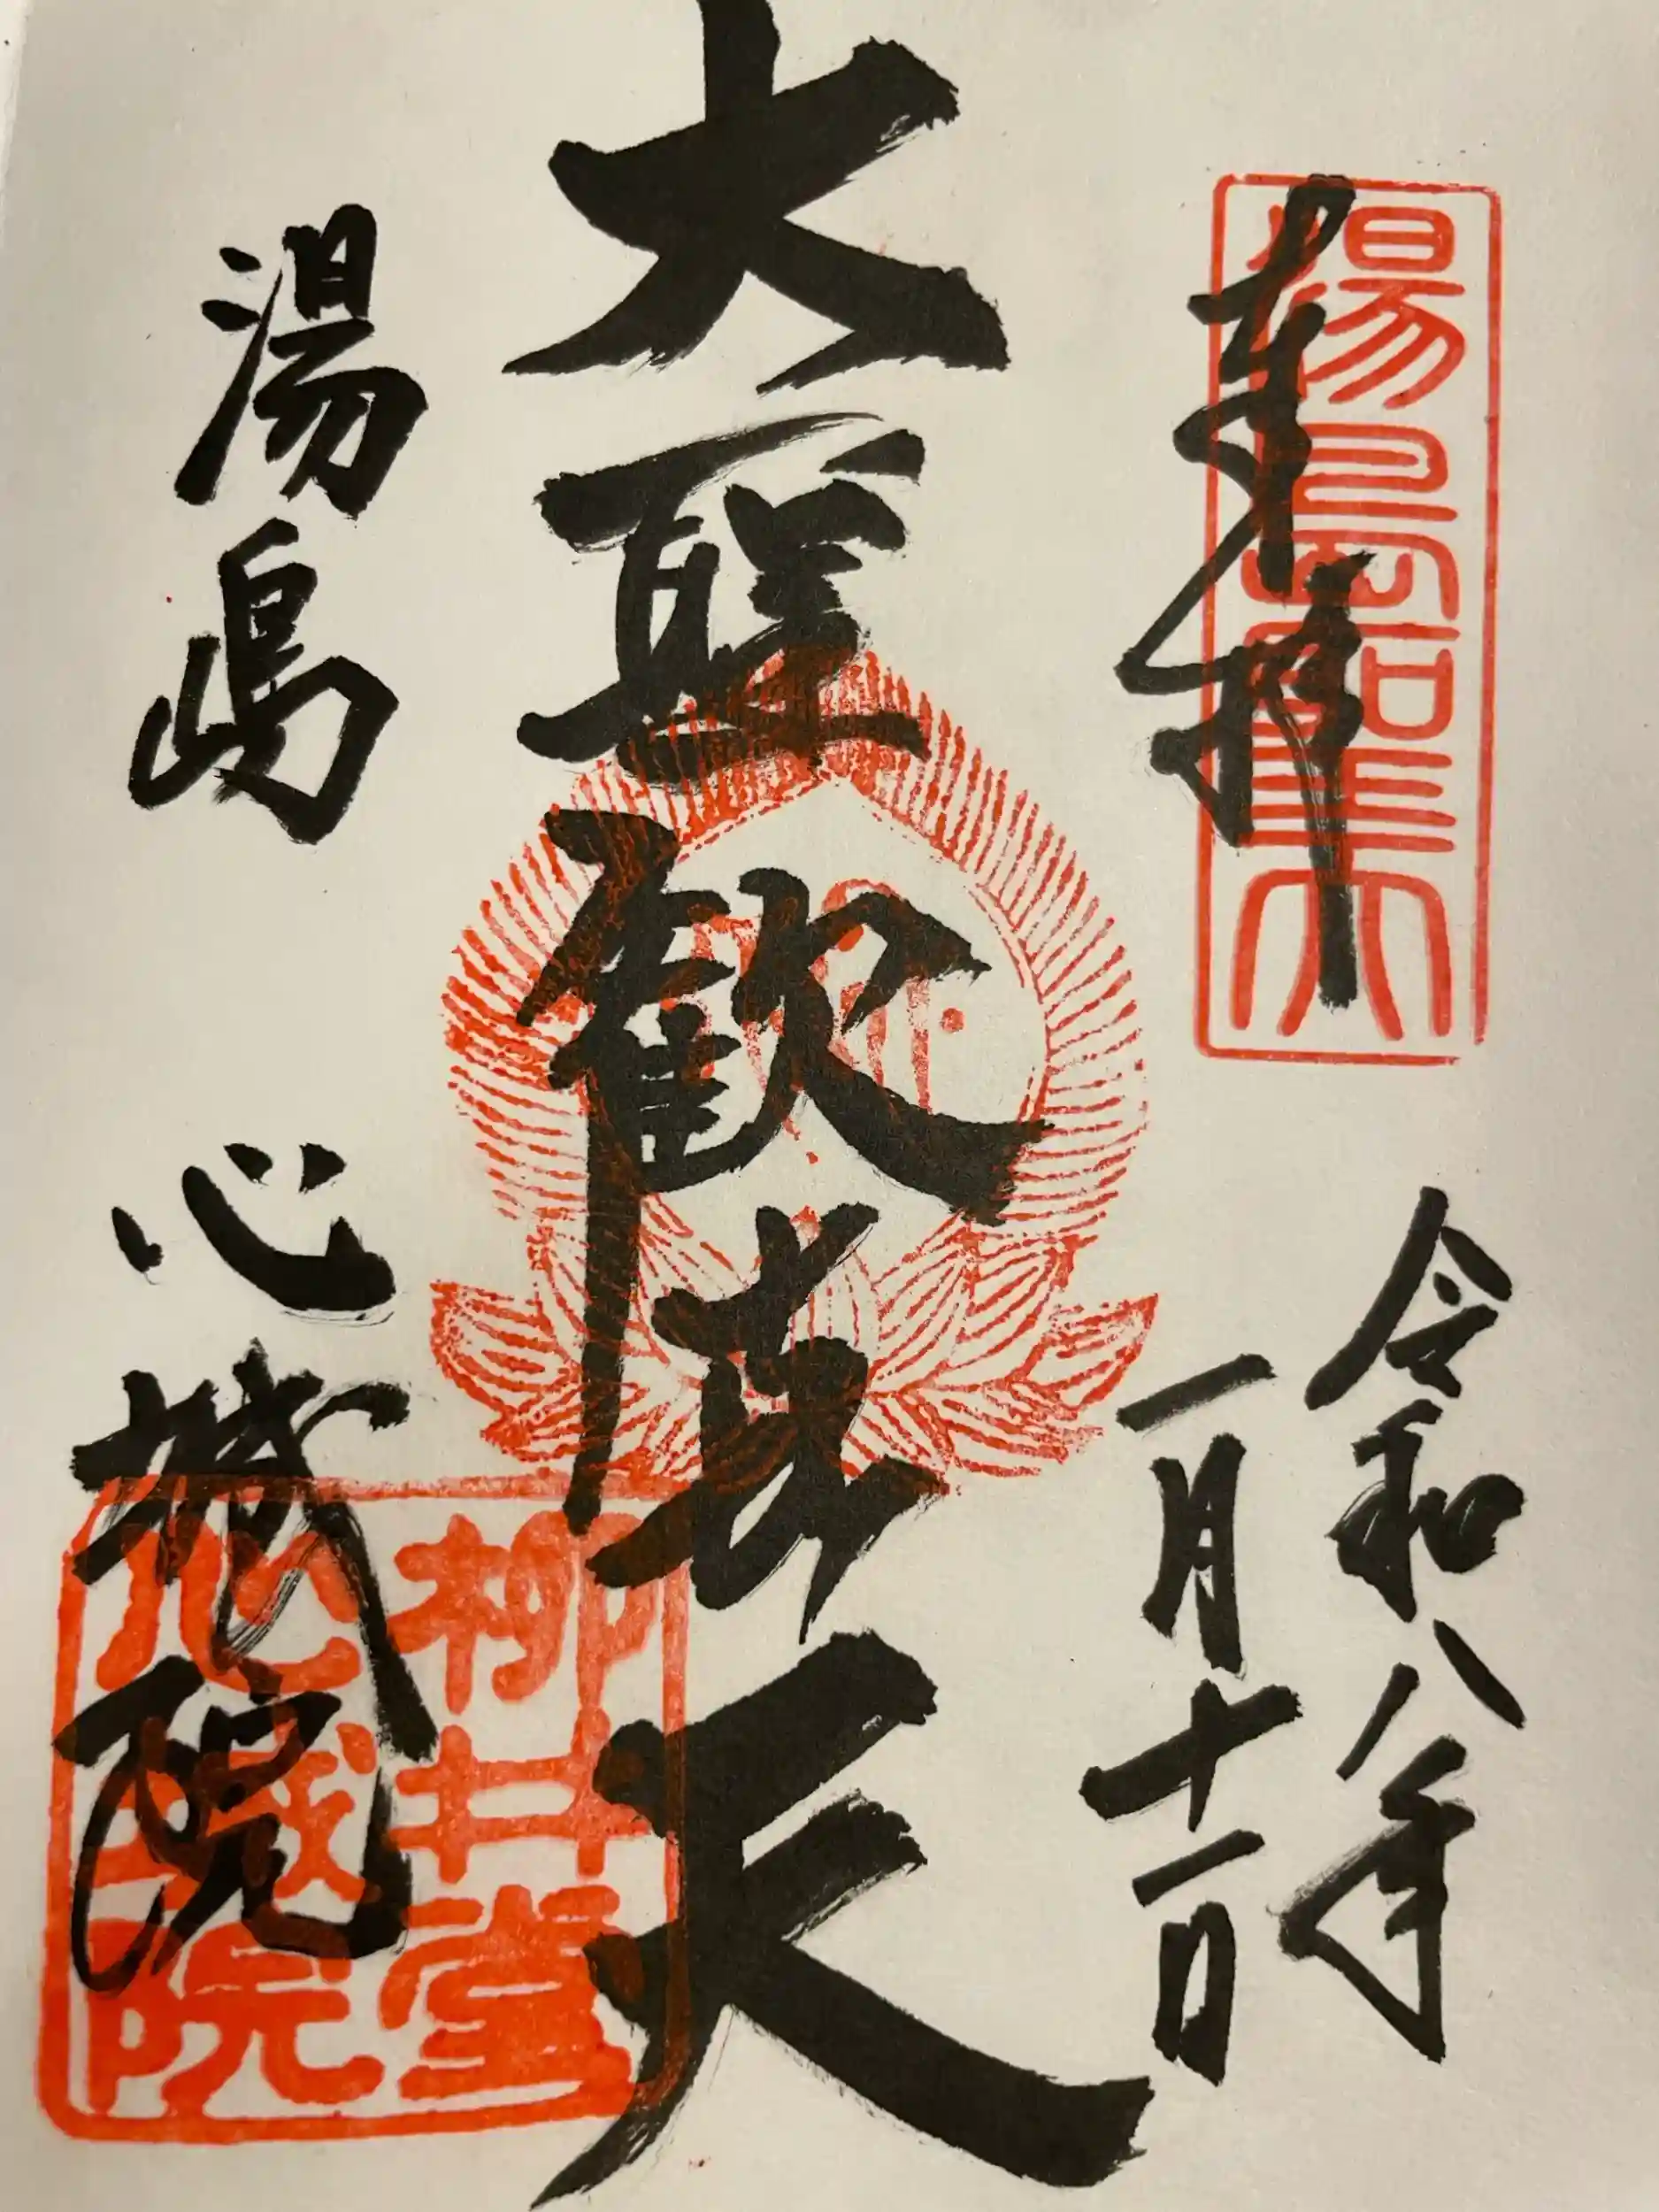 奉拝
湯島聖天
令和八年
一月十一日
大聖歓喜天
湯島 心城院
柳井堂
心城院